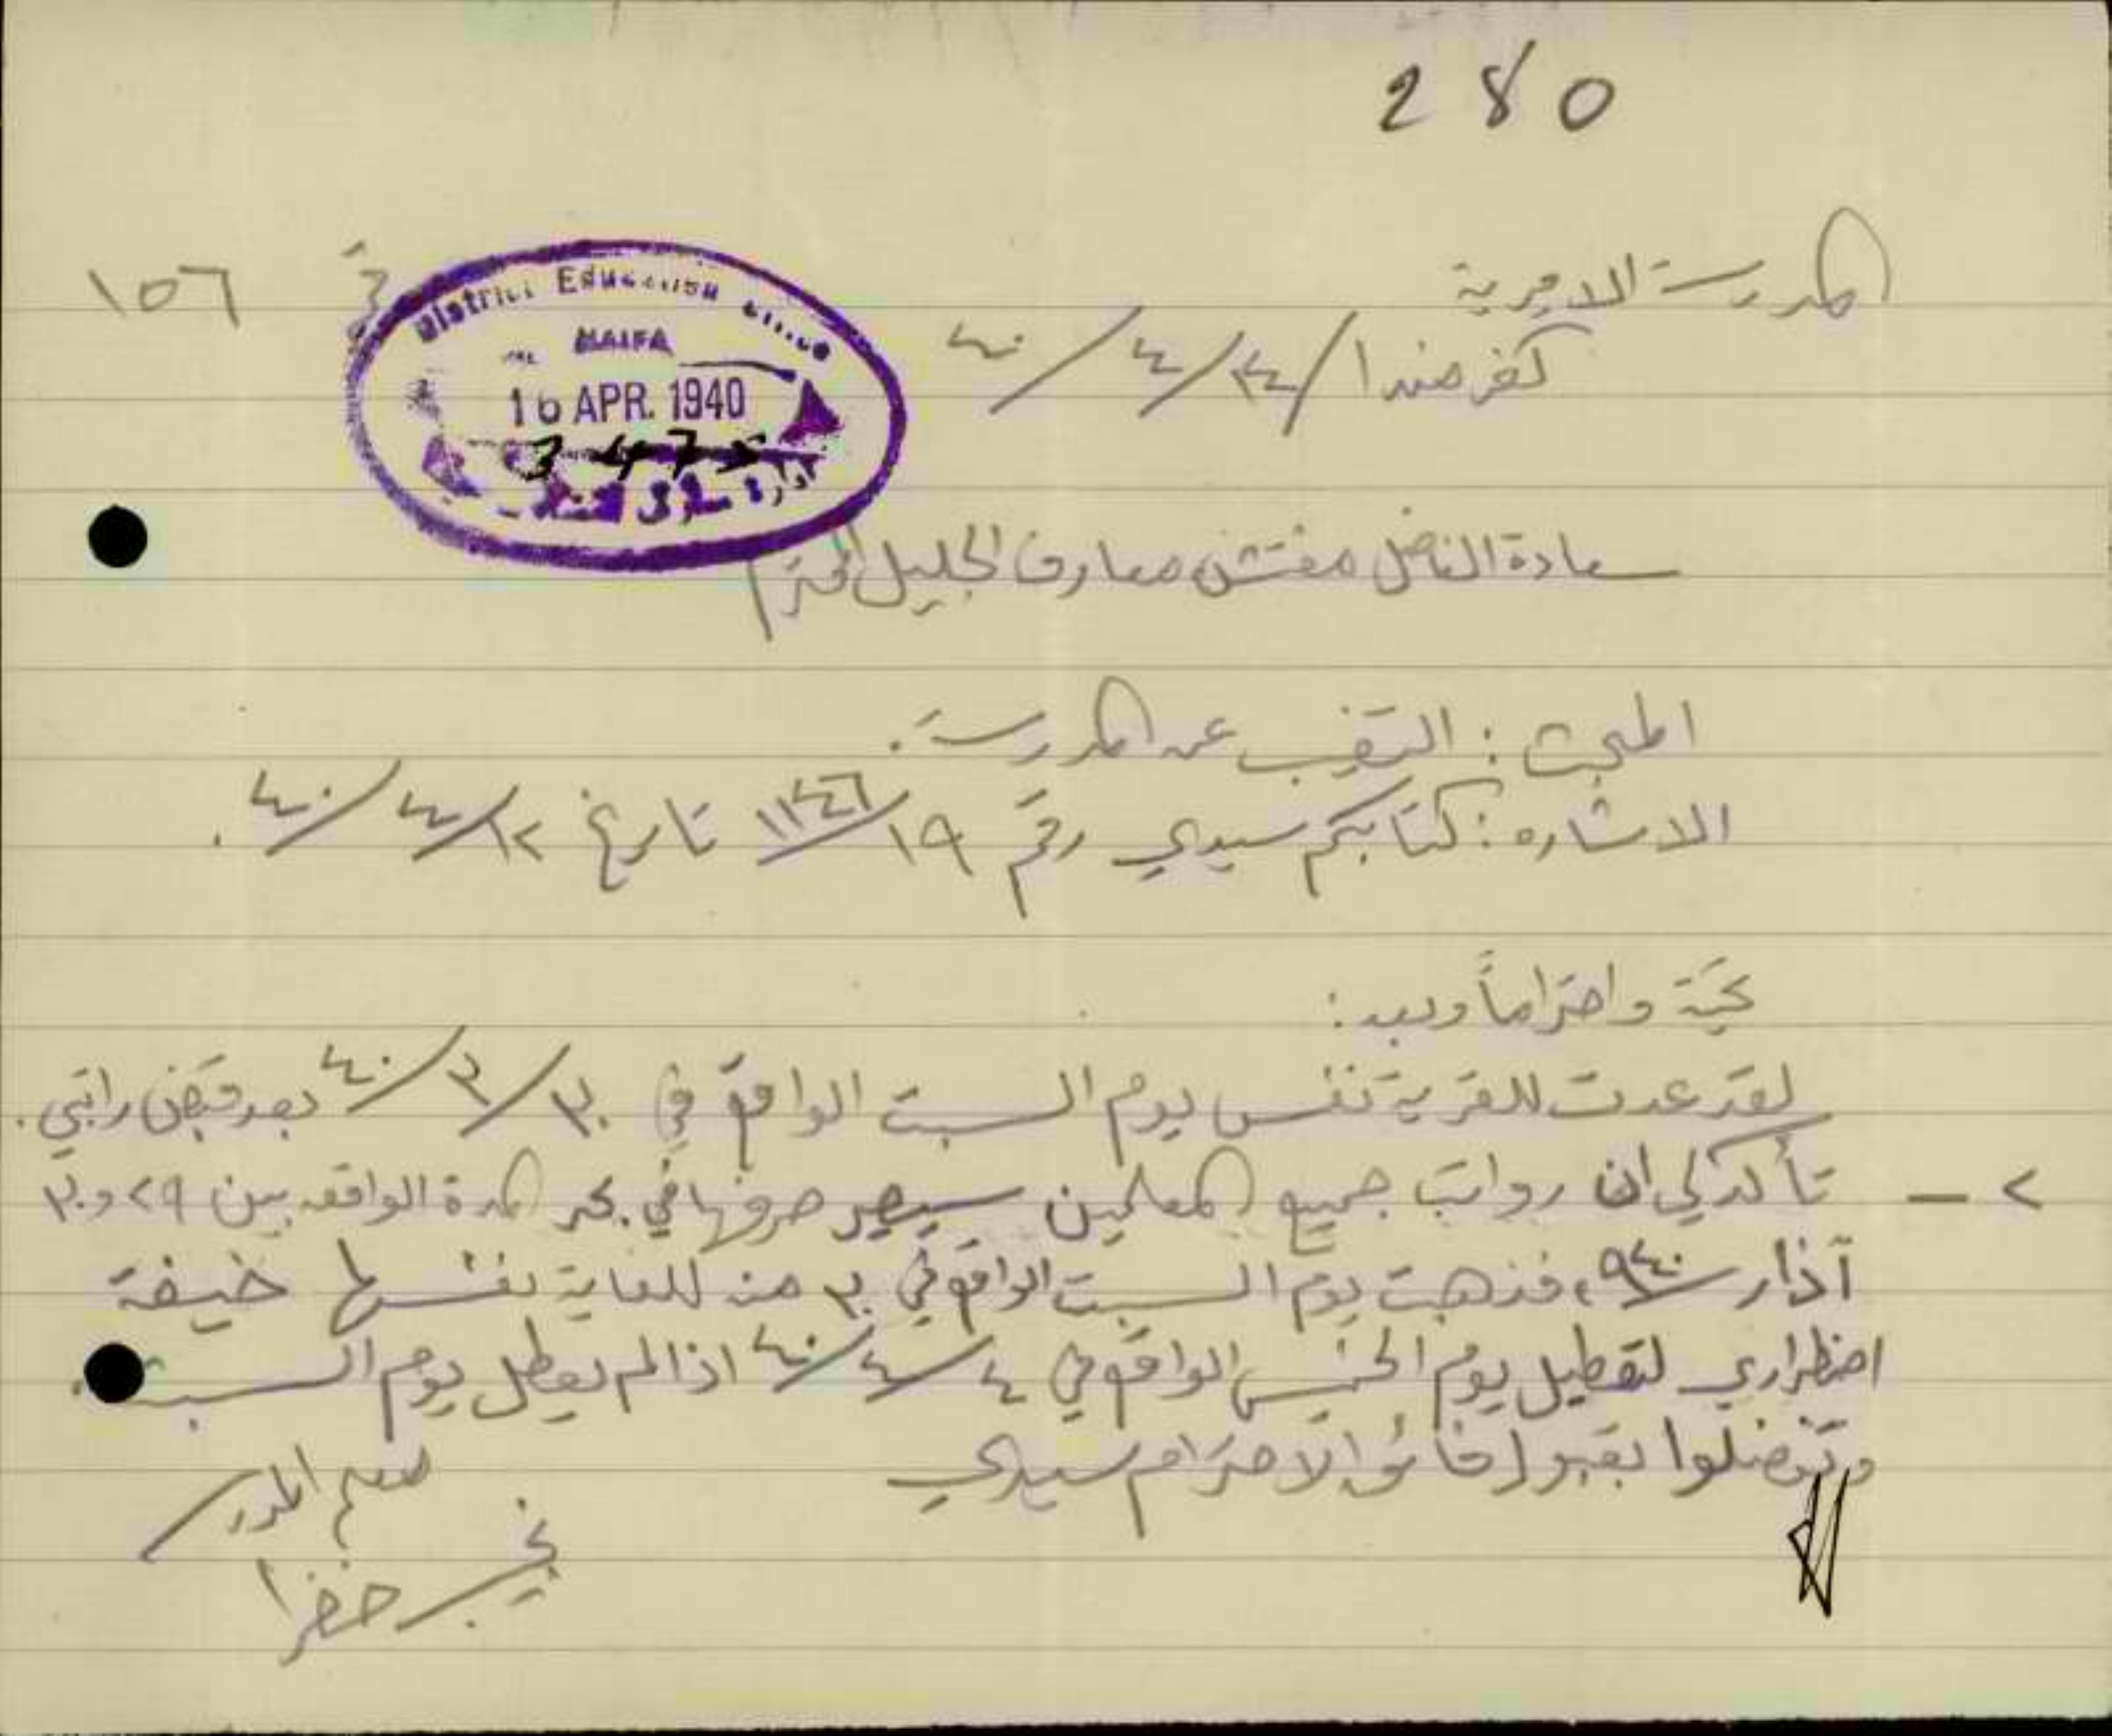 280
المدرسة الاميرية
١٥٦
كفر مندا ١٤/٤/٤٠
District Education Office
HAIFA
16 APR. 1940
347
ادارة معارف
سعادة الفاضل مفتش معارف الجليل المحترم
المبحث : التغيب عن المدرسة.
الاشاره : كتابكم سيدي رقم ١٩/١١٤٦ تاريخ ١٢/٤/٤٠.
تحية واحتراماً وبعد:
لقد عدت للقرية نفس يوم السبت الواقع في ٣٠/٣/٤٠ بعد قبض راتبي.
٢ - تأكد لي ان رواتب جميع المعلمين سيصير صرفها في بحر المدة الواقعه بين ٢٩ و ٣٠
آذار ٩٤٠، فذهبت يوم السبت الواقع في ٣٠ منه للغاية نفسها خيفة
اضطراري لتعطيل يوم الخميس الواقع في ٤/٤/٤٠ اذا لم يعطل يوم السبت.
وتفضلوا بقبول فائق الاحترام سيدي
معلم المدرسة
نجيب خضرا